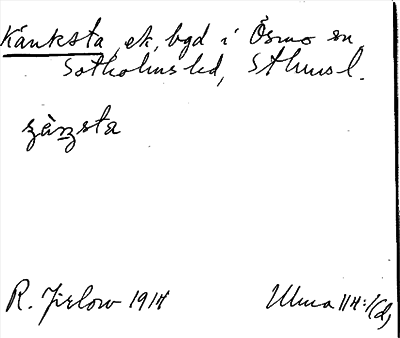 Känksta, ek, bgd i Ösmo sn,
Sotholms hd, Sthms l.
R. Jirlow 1914
Ulma 114:1(d)